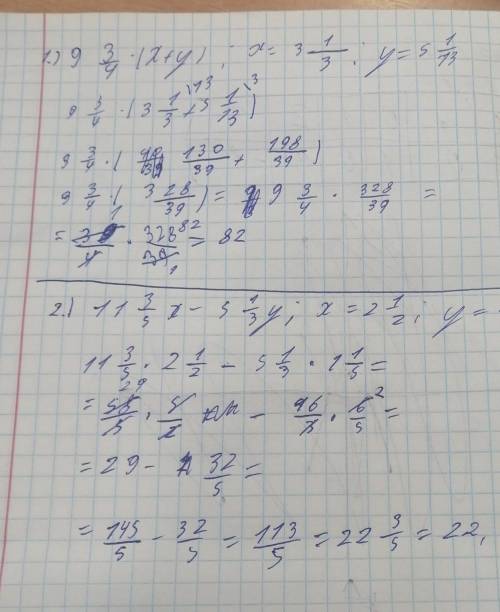 1.) 9 3/4 · (x+y) ; x = 3 1/3 ; y = 5 1/13
9 3/4 · (3 1/3 \13 + 5 1/13 \3)
9 3/4 · ( 130/39 + 198/39 )
9 3/4 · ( 328/39 ) = 9 3/4 · 328/39 =
= 39/4 · 328/39 = 82
2.) 11 3/5 x - 5 1/3 y ; x = 2 1/2 ; y =
11 3/5 · 2 1/2 - 5 1/3 · 1 1/5 =
= 58/5 · 5/2 - 16/3 · 6/5 =
= 29 - 32/5 =
= 145/5 - 32/5 = 113/5 = 22 3/5 = 22,